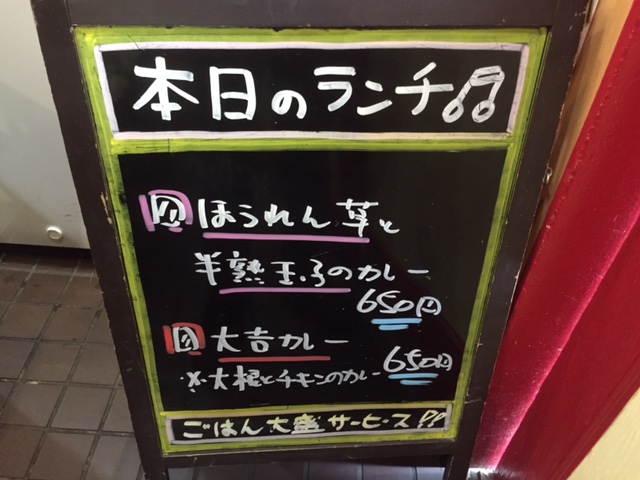 本日のランチ♫
㋐ほうれん草と
半熟玉子のカレー
650円
㋑大吉カレー 650円
※大根とチキンのカレー
ごはん大盛サービス!!